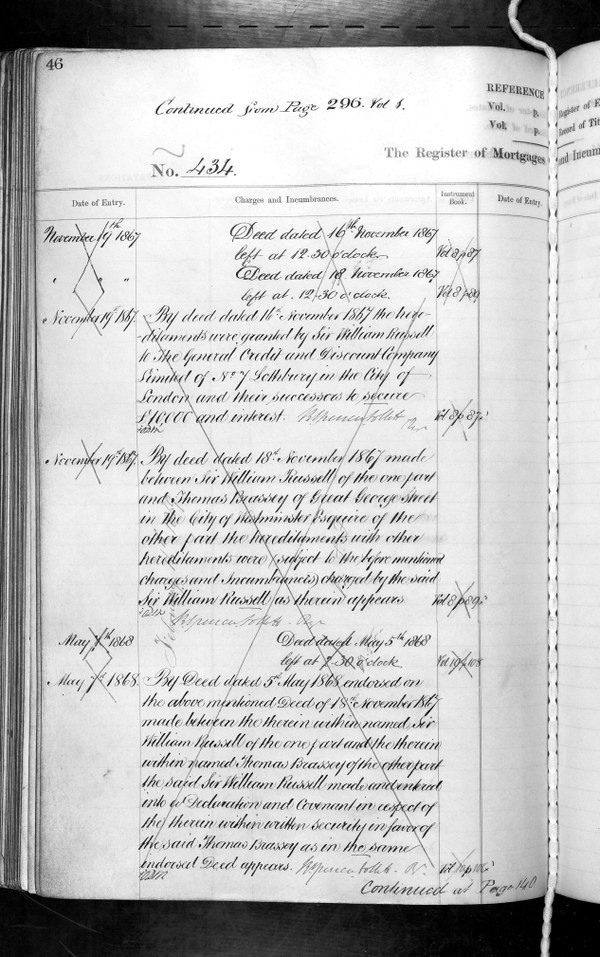 46
REFERENCE
Continued from Page 296. Vol 1.
Vol. p.
Vol. p.
Register of
Record of
No. 434.
The Register of Mortgages and Incum
Date of Entry. Charges and Incumbrances. Instrument Book. Date of Entry.
November 19th 1867 Deed dated 16th November 1867
left at 12.30 o'clock Vol 8 p 87
" " " Deed dated 18 November 1867
left at 12.30 o'clock. Vol 8 p 89
November 19th 1867. By deed dated 16th November 1867 the here-
-ditaments were granted by Sir William Russell
to The General Credit and Discount Company
Limited of No 7 Lothbury in the City of
London and their successors to secure
£10000 and interest. Vol 8 p 87
November 19th 1867. By deed dated 18th November 1867 made
between Sir William Russell of the one part
and Thomas Brassey of Great George Street
in the City of Westminster Esquire of the
other part the hereditaments with other
hereditaments were (subject to the before mentioned
charges and Incumbrances) charged by the said
Sir William Russell as therein appears. Vol 8 p 89
May 7th 1868 Deed dated May 5th 1868
left at 2.30 o'clock Vol 19 p 108
May 7th 1868. By Deed dated 5th May 1868 endorsed on
the above mentioned Deed of 18th November 1867
made between the therein within named Sir
William Russell of the one part and the therein
within named Thomas Brassey of the other part
the said Sir William Russell made and entered
into a Declaration and Covenant in respect of
the therein within written security in favor of
the said Thomas Brassey as in the same
endorsed Deed appears.
Continued at Page 140